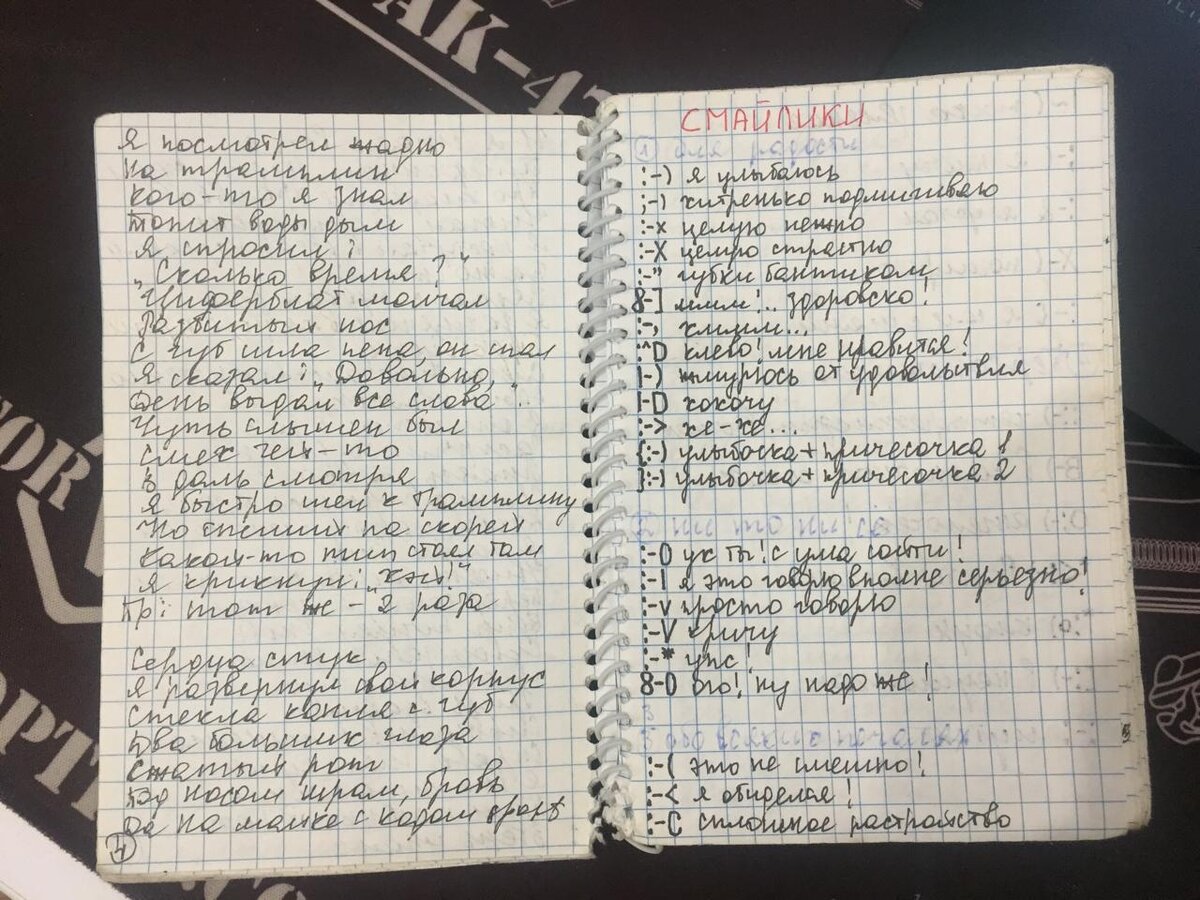 Я посмотрел жадно
На трамплин
Кого-то я знал
Топит воды дым
Я спросил:
„Сколько время?"
Циферблат молчал
Разбитый нос
С губ шла пена, он спал
Я сказал: „Довольно,
День выдал все слова"..
Чуть слышен был
Смех чей-то
В даль смотря
Я быстро шёл к трамплину
Но спешил на скорей
Какой-то тип стоял там
Я крикнул: „Хэй!"
Пр: тот же - 2 раза
Сердца стук
Я развернул свой корпус
Стекла капля с губ
Два больших глаза
Сжатый рот
Под носом шрам, бровь
Да на майке с кадом кровь
4
СМАЙЛИКИ
1 для радости
:-) я улыбаюсь
;-) хитренько подмигиваю
:-x целую нежно
:-X целую страстно
:-" губки бантиком
8-] ммм!.. здоровско!
:-, хммм...
:^D клево! мне нравится!
|-) жмурюсь от удовольствия
|-D хохочу
:-> хе-хе...
{:-) улыбочка+причесочка 1
}:-) улыбочка+причесочка 2
2 ни то ни сё
:-O ух ты! с ума сойти!
:-| я это говорю вполне серьезно!
:-v просто говорю
:-V кричу
:-* упс!
8-O ого! ну надо же!
3
:-( это не смешно!
:-< я обиделся!
:-C сплошное растройство
АК-47